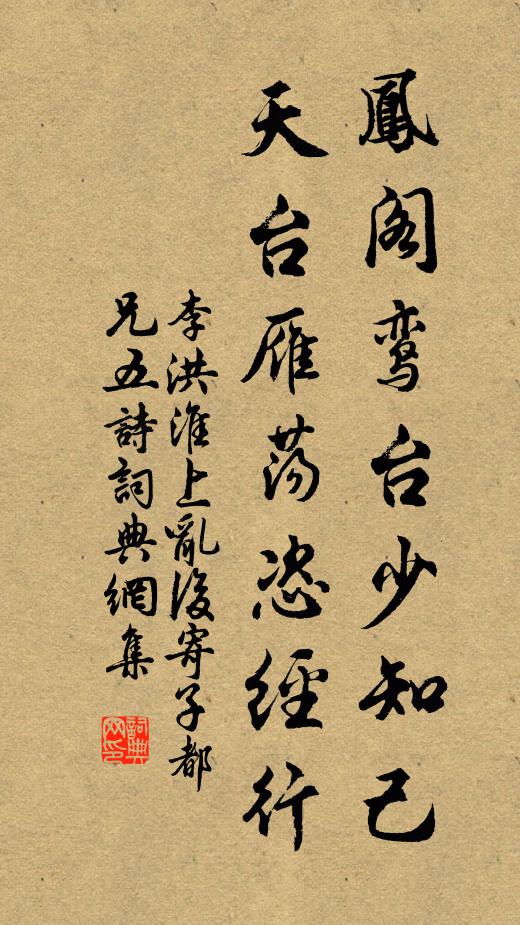 鳳閣鸾台少知己
天台雁荡恣經行
李洪淮上亂後寄子都
兄五詩詞典網集
詞典
网印